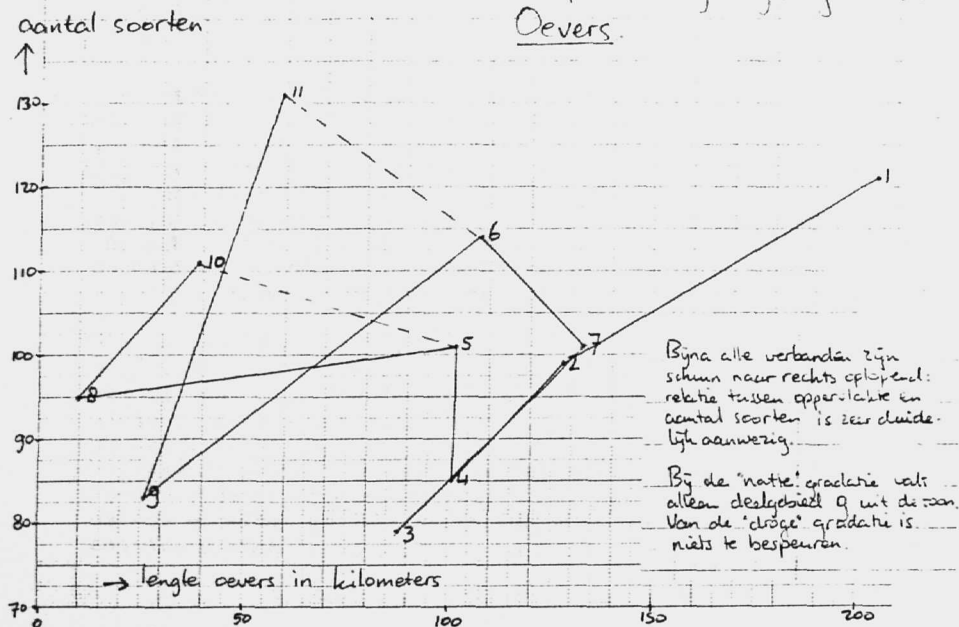 Oevers.
aantal soorten
130
120
110
100
90
80
70
11
1
6
10
7
5
2
8
4
9
3
→ lengte oevers in kilometers
0
50
100
150
200
Bijna alle verbanden zijn
schuin naar rechts oplopend:
relatie tussen oppervlakte en
aantal soorten is zeer duide-
lijk aanwezig.
Bij de "natte" gradatie valt
alleen deelgebied 9 uit de toon.
Van de "droge" gradatie is
niets te bespeuren.